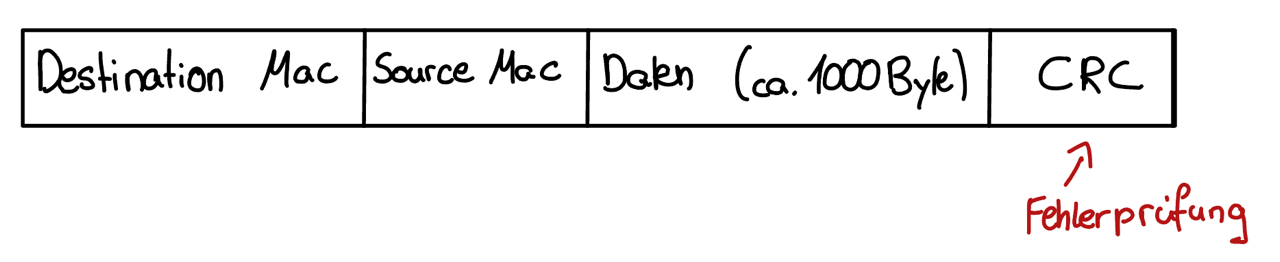 Destination Mac Source Mac Daten (ca. 1000 Byte) CRC
Fehlerprüfung